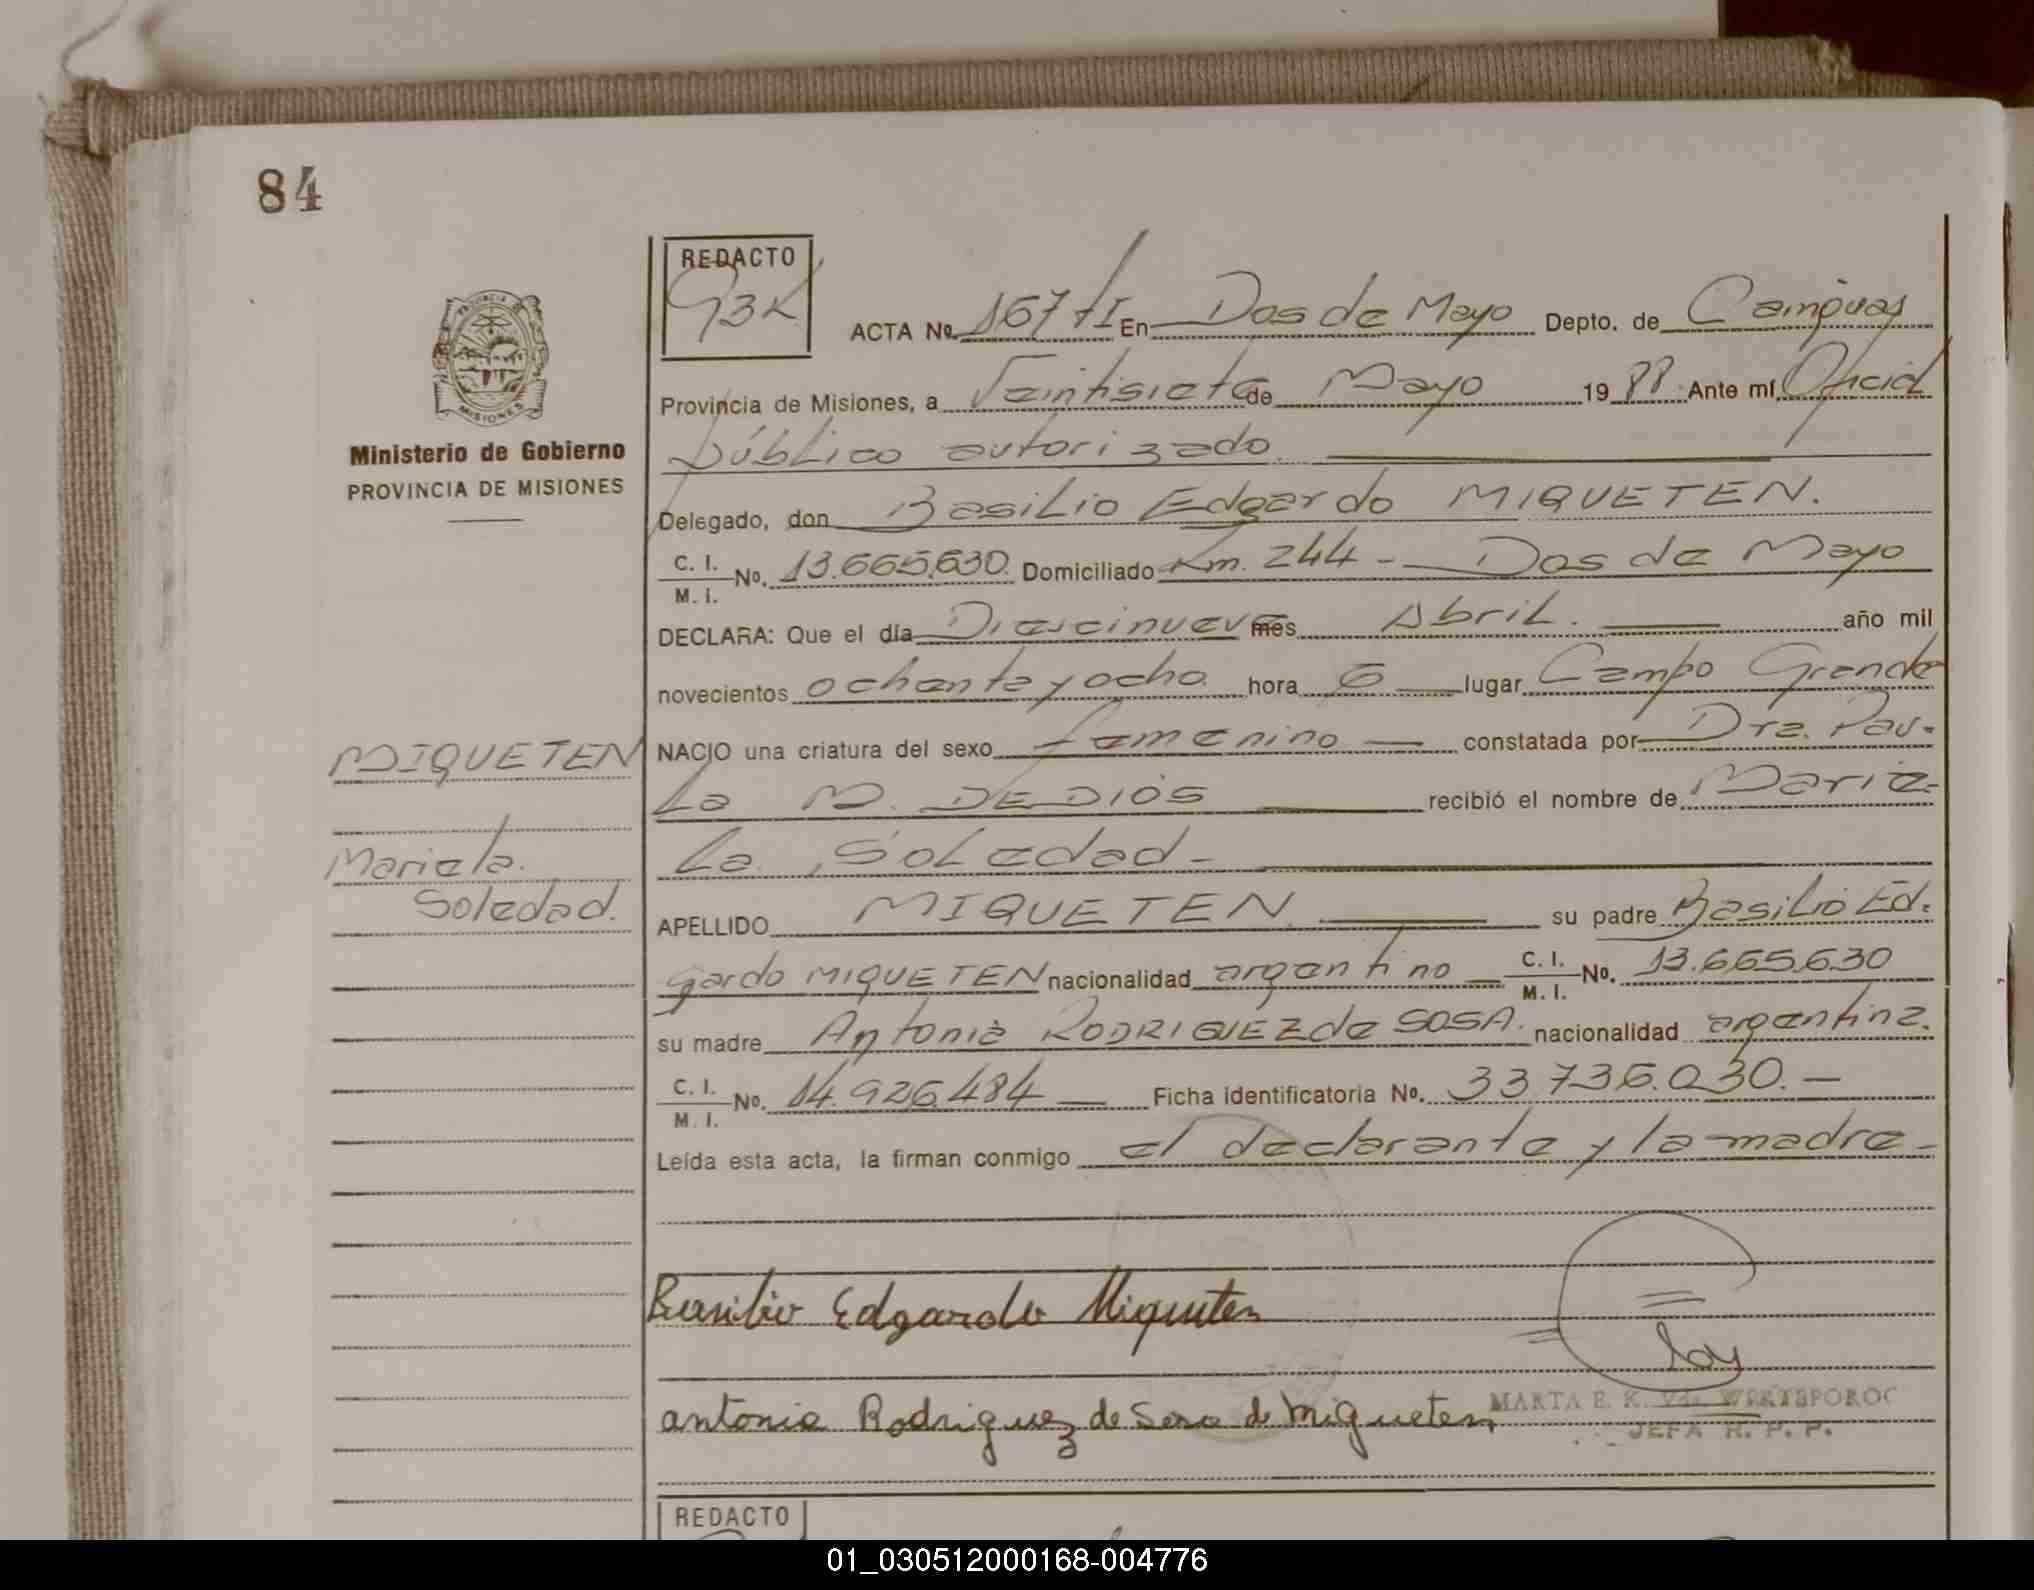 84
REDACTO
ACTA No. 167 / I En Dos de Mayo Depto. de Cainguas
Provincia de Misiones, a Veintisiete de Mayo 1988 Ante mí, Oficial
público autorizado.
Ministerio de Gobierno
PROVINCIA DE MISIONES
Delegado, don Basilio Edgardo MIQUETEN.
C. I.
M. I. No. 13.665.630. Domiciliado Km. 244 - Dos de Mayo
DECLARA: Que el día Diecinueve mes Abril. año mil
novecientos ochenta y ocho hora 6 lugar Campo Grande
NACIO una criatura del sexo femenino constatada por Dra. Pau-
la M. DE DIOS recibió el nombre de Marie-
la Soledad-
MIQUETEN
Mariela.
Soledad.
APELLIDO MIQUETEN su padre Basilio Ed-
gardo MIQUETEN nacionalidad argentino C. I.
M. I. No. 13.665.630
su madre Antonia RODRIGUEZ de SOSA. nacionalidad argentina.
C. I.
M. I. No. 14.926.484 Ficha identificatoria No. 33.736.030.-
Leída esta acta, la firman conmigo el declarante y la madre-
Basilio Edgardo Miqueten
antonia Rodriguez de Sosa de Miqueten
MARTA E. K. Vda. WERTSPOROC
JEFA R. P. P.
REDACTO
01_030512000168-004776